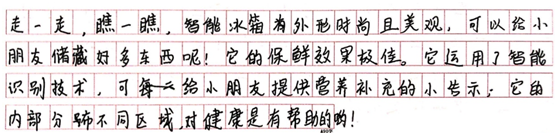 走一走，瞧一瞧，智能冰箱有外形时尚且美观，可以给小
朋友储藏好多东西呢！它的保鲜效果极佳。它运用了智能
识别技术，可给小朋友提供营养补充的小告示；它的
内部分不同区域，对健康是有帮助的哟！